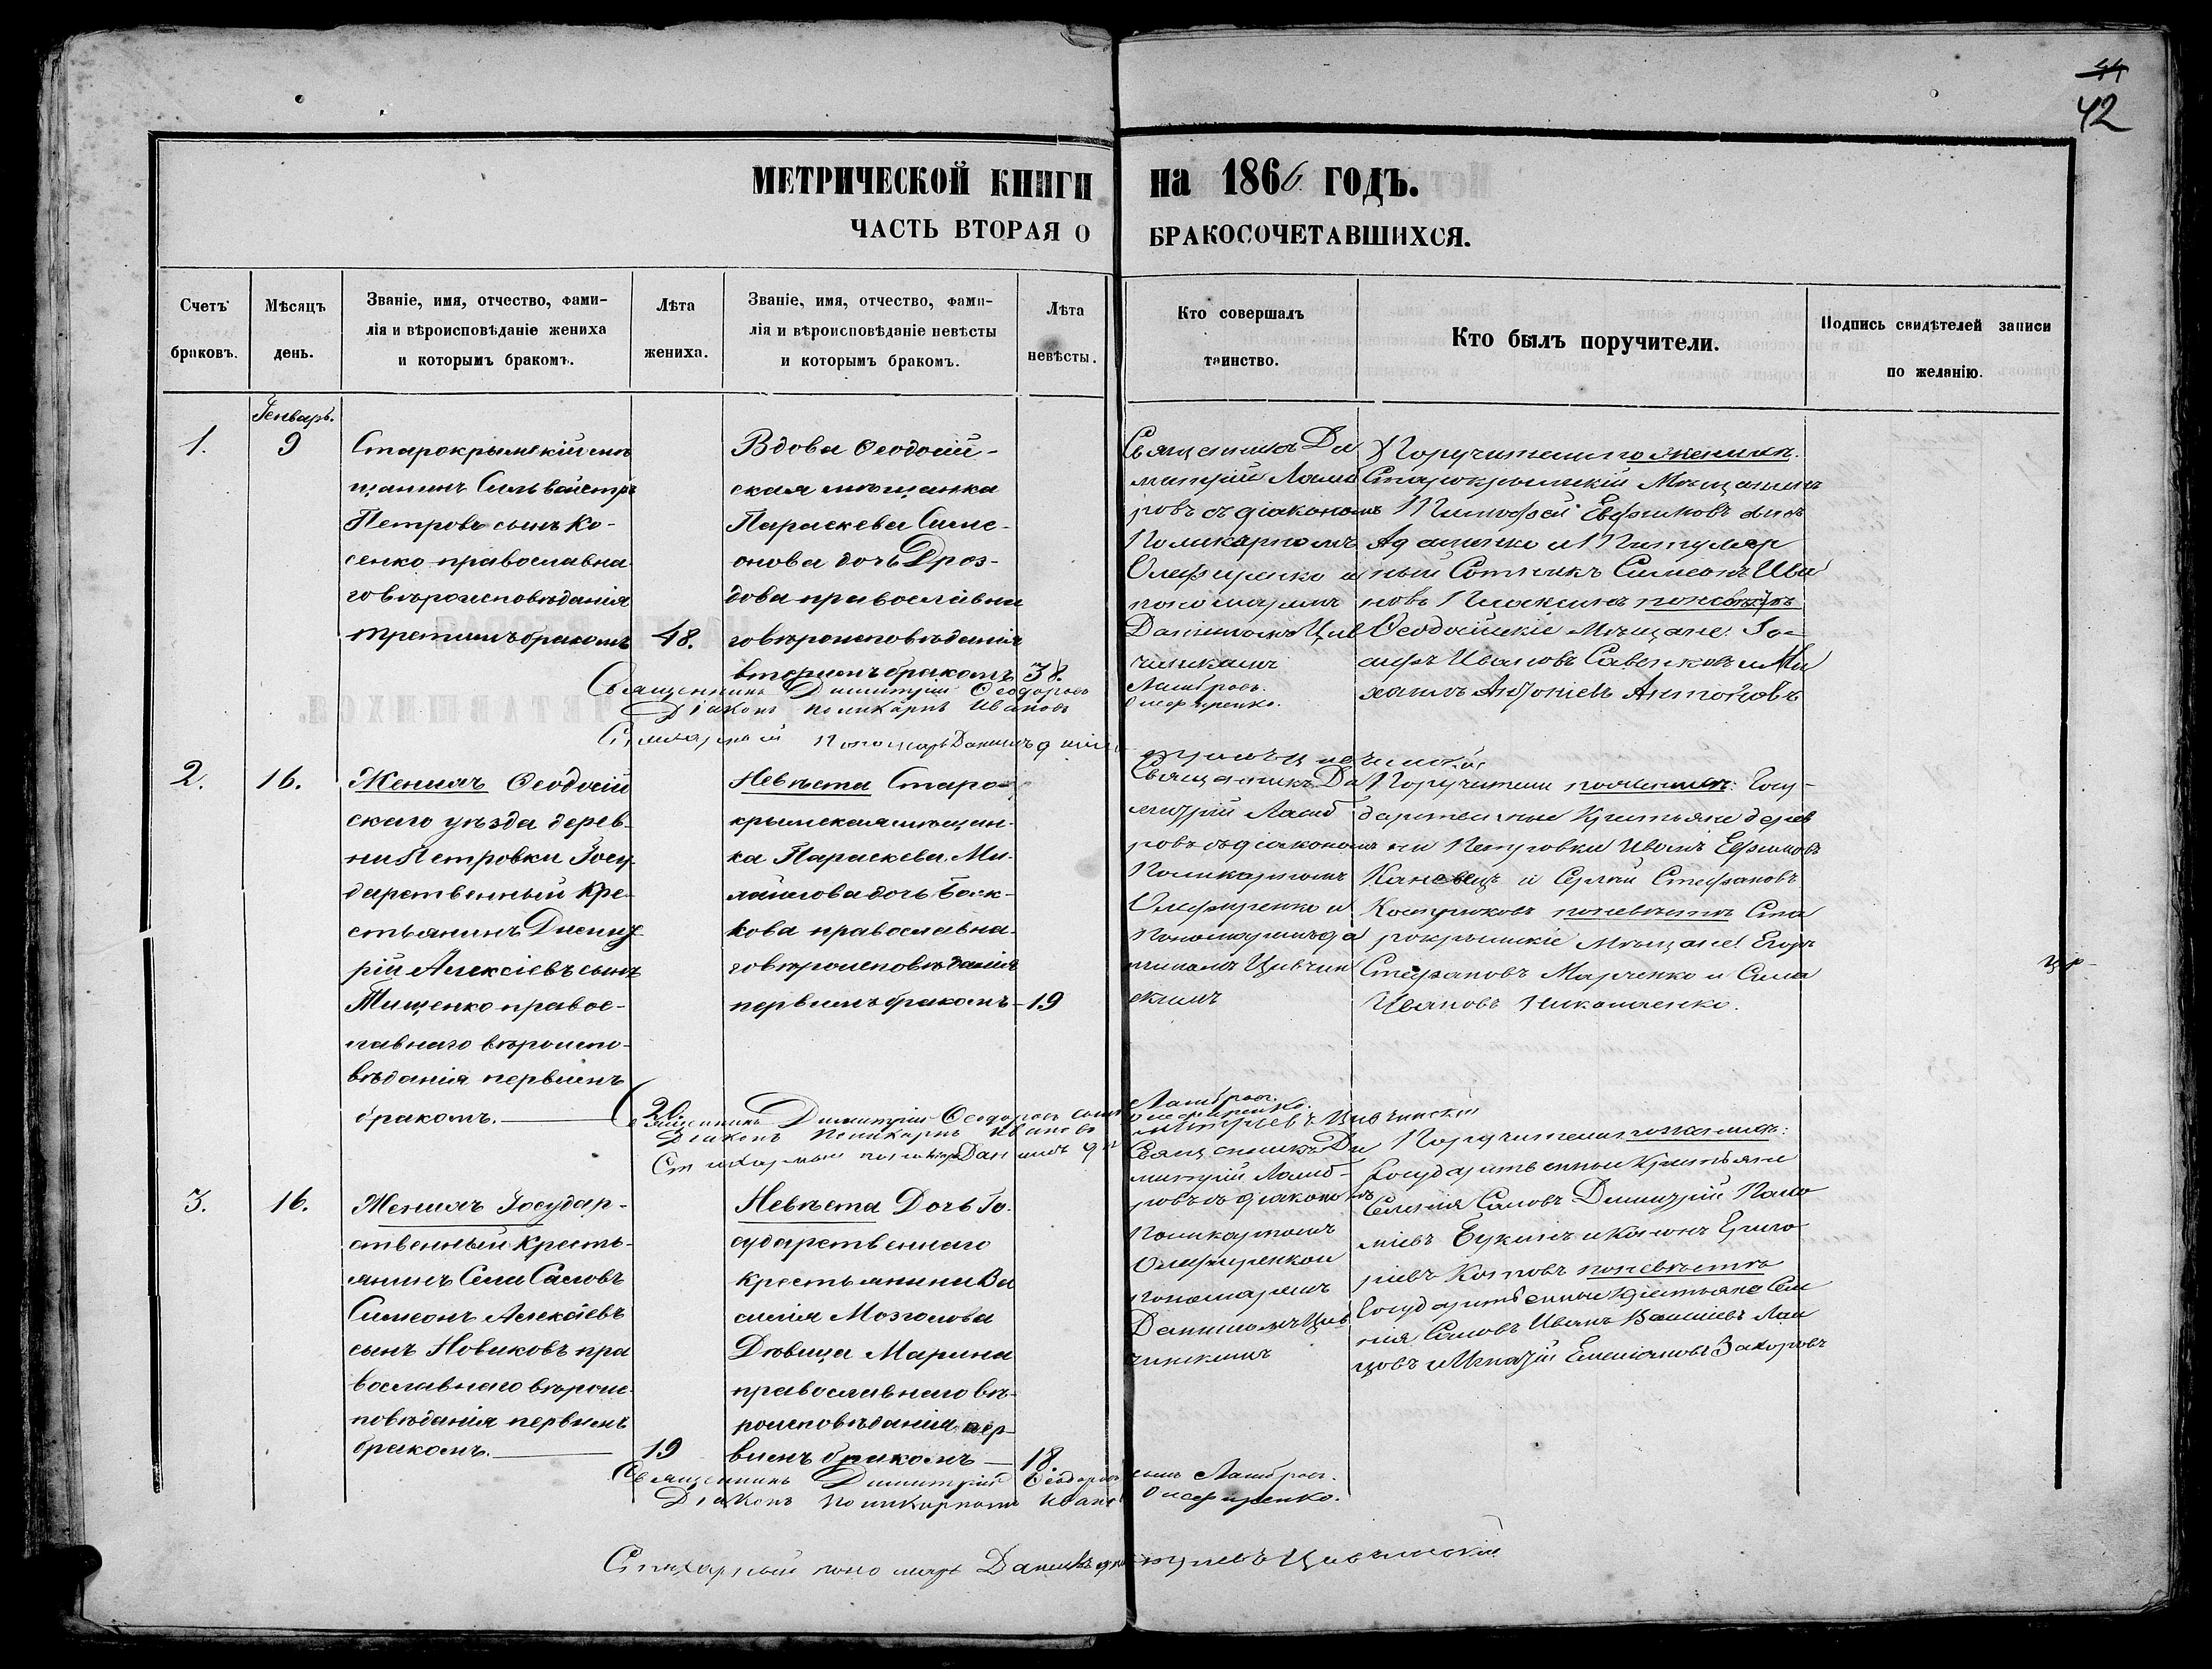 44
42
МЕТРИЧЕСКОЙ КНИГИ на 1866 ГОДЪ.
ЧАСТЬ ВТОРАЯ О БРАКОСОЧЕТАВШИХСЯ.
Счетъ браковъ.
Мѣсяцъ день.
Званіе, имя, отчество, фами-
лія и вѣроисповѣданіе жениха
и которымъ бракомъ.
Лѣта
жениха.
Званіе, имя, отчество, фами-
лія и вѣроисповѣданіе невѣсты
и которымъ бракомъ.
Лѣта
невѣсты.
Кто совершалъ
таинство.
Кто былъ поручители.
Подпись свидѣтелей записи
по желанію.
Генварь.
1.
9
Старокрымскій мѣ
щанинъ Сильвестръ
Петровъ сынъ Ко-
сенко православна
го вѣроисповѣданія
третьимъ бракомъ
48.
Вдова Ѳеодосій-
ская мѣщанка
Параскева Симе-
онова дочь Дроз-
дова православна
го вѣроисповѣданія
вторымъ бракомъ
38.
Священникъ Ди
митрій Ламб
ровъ съ діакономъ
Поликарпомъ
Олефиренко и
пономаремъ
Даніиломъ Цив
чинскимъ
Поручители по женихѣ:
Старокрымскій Мѣщанинъ
Тимофей Ефимовъ сынъ
Адаменко и Титуляр
ный Совѣтникъ Симеонъ Ива
новъ по невѣстѣ
Ѳеодосійскіе Мѣщане: Іо-
сифъ Ивановъ Савенковъ и Ми
хаилъ Антоніевъ Антоновъ
Священникъ Димитрій Ѳеодоровъ Ламбровъ.
Діаконъ Поликарпъ Ивановъ Олефиренко.
Стихарный Пономарь Даніилъ Димитріевъ Цивчинскій
2.
16.
Женихъ Ѳеодосій
скаго уѣзда дерев-
ни Петровки Госу-
дарственный Кре-
стьянинъ Димит-
рій Алексіевъ сынъ
Тищенко правос-
лавнаго вѣроиспо-
вѣданія первымъ
бракомъ.
20.
Невѣста Старо-
крымская мѣщан-
ка Параскева Ми-
хайлова дочь
православна-
го вѣроисповѣданія
первымъ бракомъ
19
Священникъ Ди
митрій Ламб
ровъ съ діакономъ
Поликарпомъ
Олефиренко и
Пономаремъ Да
ніиломъ Цивчин
скимъ
Поручители по женихѣ: Госу-
дарственные Крестьяне дерев
ни Петровки Иванъ Ефимовъ
Каневецъ и Сергій Стефановъ
Кострюковъ по невѣстѣ Ста
рокрымскіе Мѣщане: Егоръ
Стефановъ Марченко и Сила
Ивановъ Николаенко.
Священникъ Димитрій Ѳеодоровъ сынъ Ламбровъ.
Діаконъ Поликарпъ Ивановъ Олефиренко.
Стихарный пономарь Даніилъ Димитріевъ Цивчинскій
3.
16.
Женихъ Государ-
ственный Кресть-
янинъ Села Саловъ
Симеонъ Алексіевъ
сынъ Новиковъ пра
вославнаго вѣроис-
повѣданія первымъ
бракомъ.
19
Невѣста Дочь Го-
сударственнаго
Крестьянина Ва
силія Мозголова
Дѣвица Марина
православнаго вѣ-
роисповѣданія пер-
вымъ бракомъ
18.
Священникъ Ди
митрій Ламб-
ровъ съ діакономъ
Поликарпомъ
Олефиренкои
пономаремъ
Даніиломъ Цив
чинскимъ
Поручители по женихѣ:
Государственные Крестьяне
Селенія Саловъ Димитрій
Букинъ и Григо
ріевъ Котовъ по невѣстѣ
Государственные Крестьяне Селе
нія Саловъ Иванъ Василіевъ
и Игнатій Емеліановъ Захаровъ
Священникъ Димитрій Ѳеодоровъ сынъ Ламбровъ.
Діаконъ Поликарпъ Ивановъ Олефиренко.
Стихарный пономарь Даніилъ Димитріевъ Цивчинскій